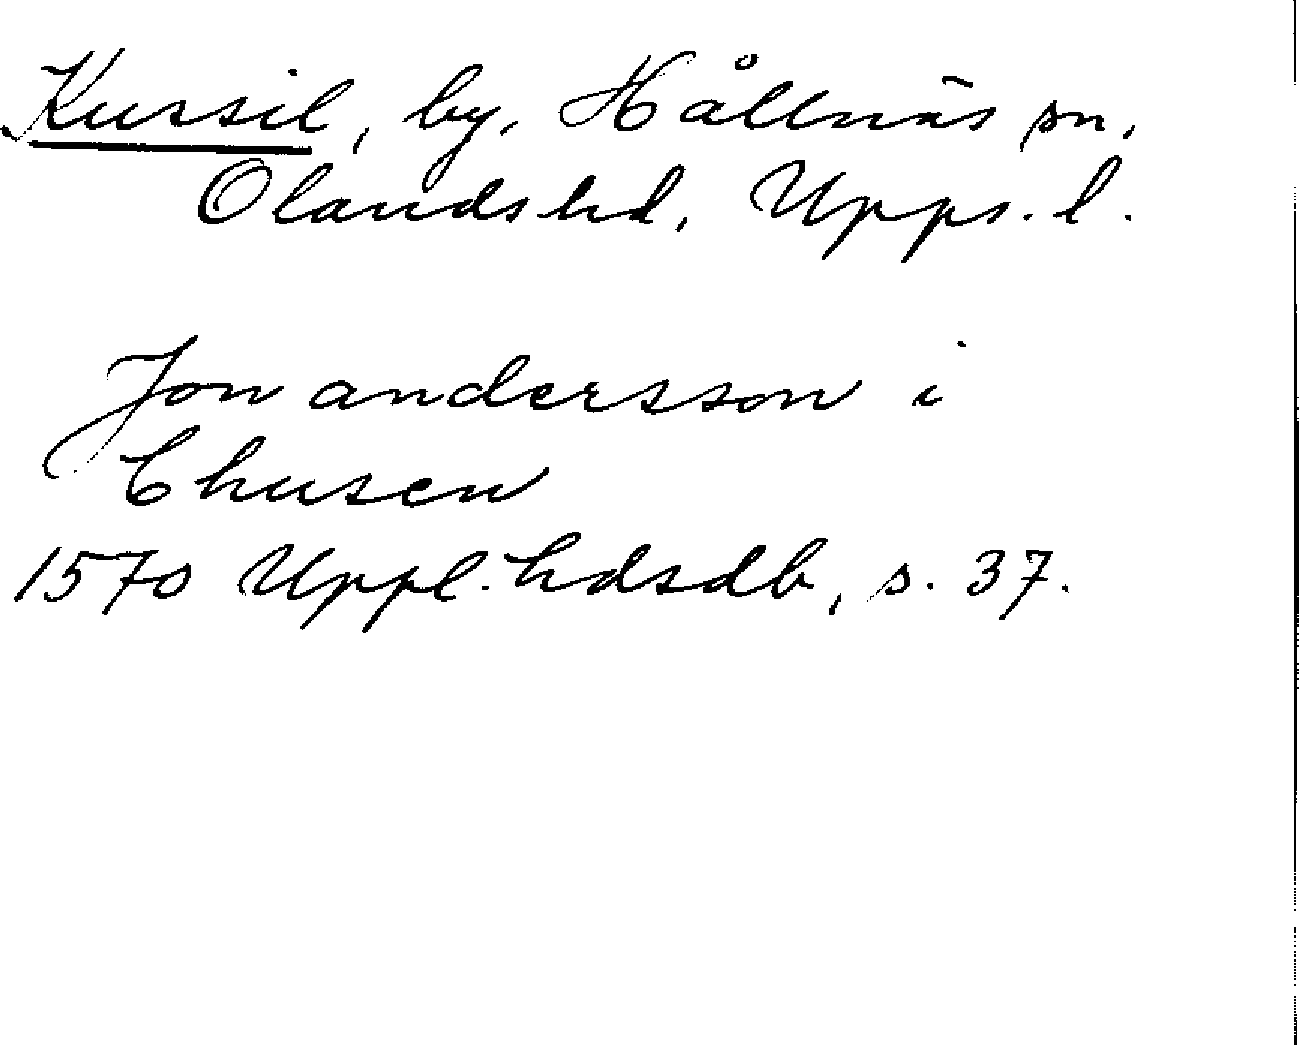 Kursil, by, Hållnäs sn,
Olands hd, Upps. l.
Jon andersson i
Chusen
1570 Uppl. hdsdb, s. 37.